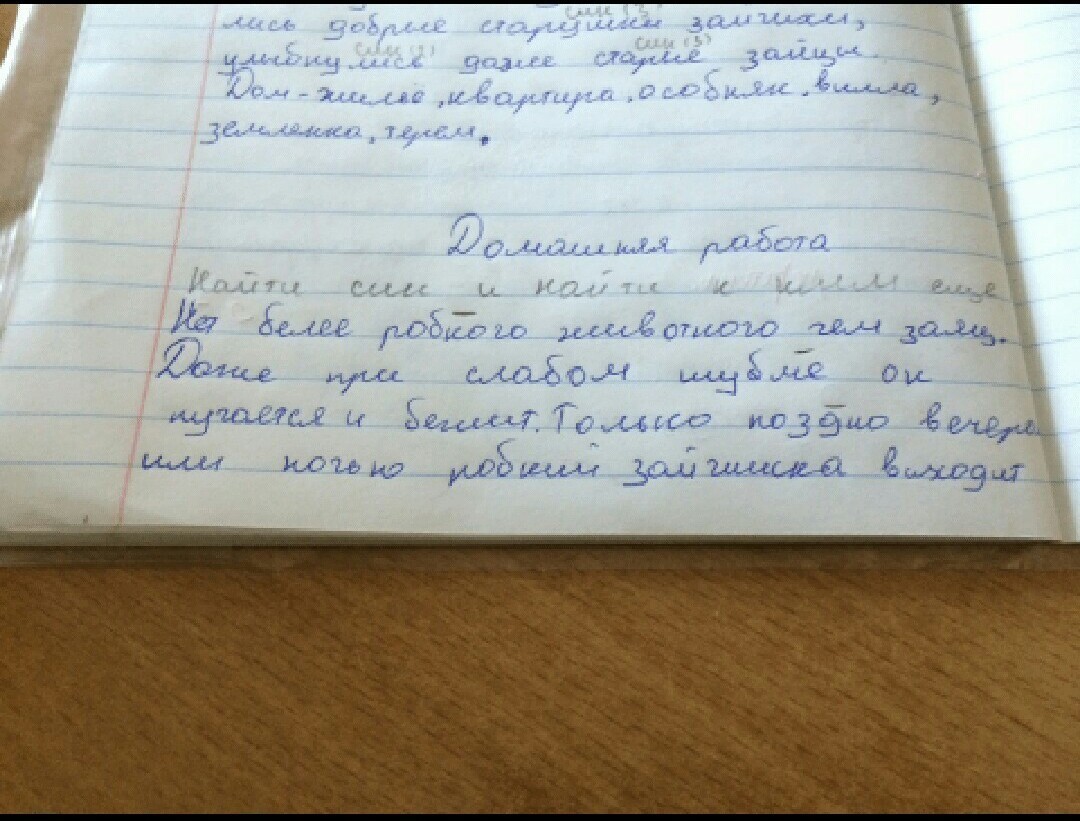 лись добрые старушки зайчихи,
син (3)
улыбнулись даже старые зайцы.
син (2) син (3)
Дом-жильё, квартира, особняк, вилла,
землянка, терем.
Домашняя работа
Найти син и найти к ним еще
Нет более робкого животного чем заяц.
Даже при слабом шубме он
пугается и бежит. Только поздно вечера
или ночью робкий зайчишка выходит